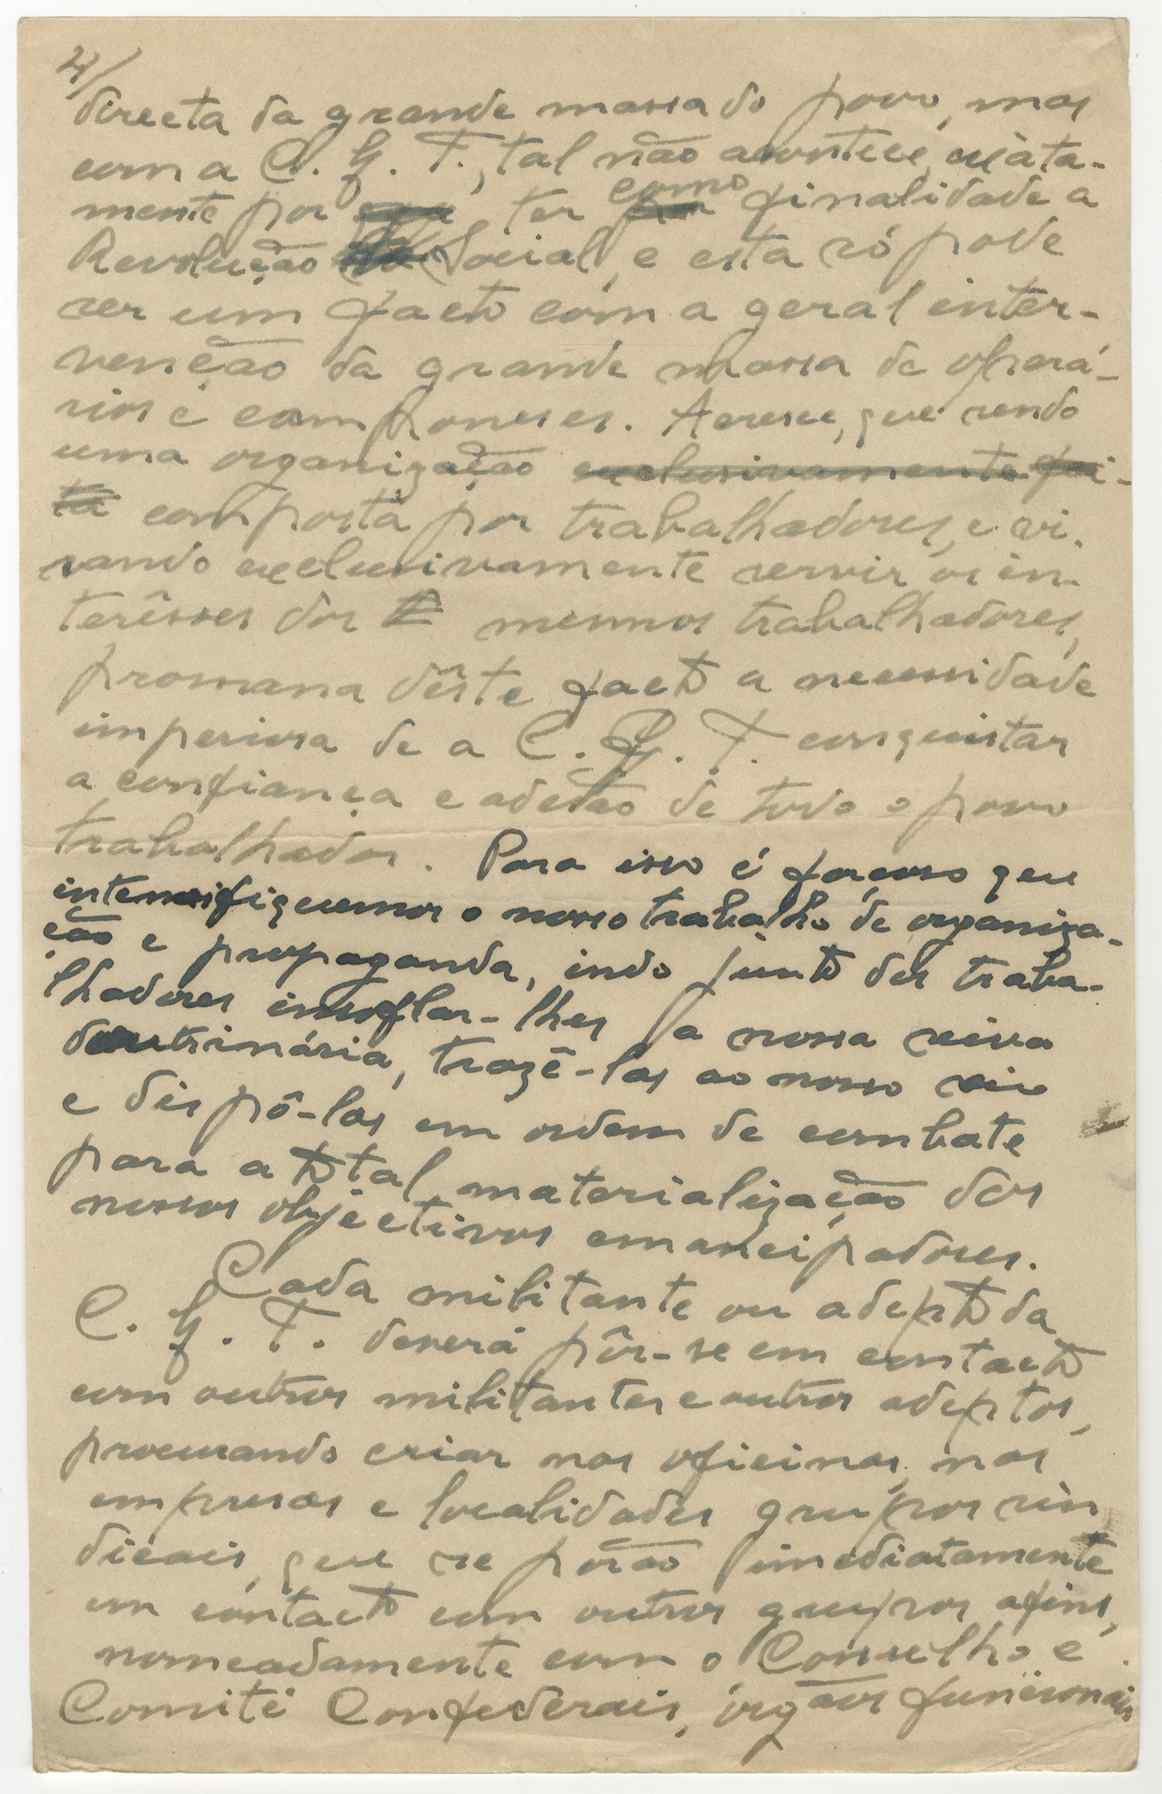 4/
directa da grande massa do povo, mas
com a C. G. T., tal não acontece, exàta-
mente por ter como finalidade a
Revolução Social, e esta só pode
ser um facto com a geral inter-
venção da grande massa de operá-
rios e camponeses. Acresce, que sendo
uma organização exclusivamente fei-
ta composta por trabalhadores, e vi-
sando exclusivamente servir os in-
terêsses dos mesmos trabalhadores,
promana dêste facto a necessidade
imperiosa de a C. G. T. conquistar
a confiança e adesão de todo o povo
trabalhador. Para isso é forçoso que
intensifiquemos o nosso trabalho de organiza-
ção e propaganda, indo junto dos traba-
lhadores insuflar-lhes a nossa seiva
doutrinária, trazê-los ao nosso seio
e dispô-los em ordem de combate
para a total materialização dos
nossos objectivos emancipadores.
Cada militante ou adepto da
C. G. T. deverá pôr-se em contacto
com outros militantes e outros adeptos,
procurando criar nas oficinas, nas
empresas e localidades grupos sin
dicais, que se porão imediatamente
em contacto com outros grupos afins,
nomeadamente com o Conselho e
Comité Confederais, órgãos funcionais